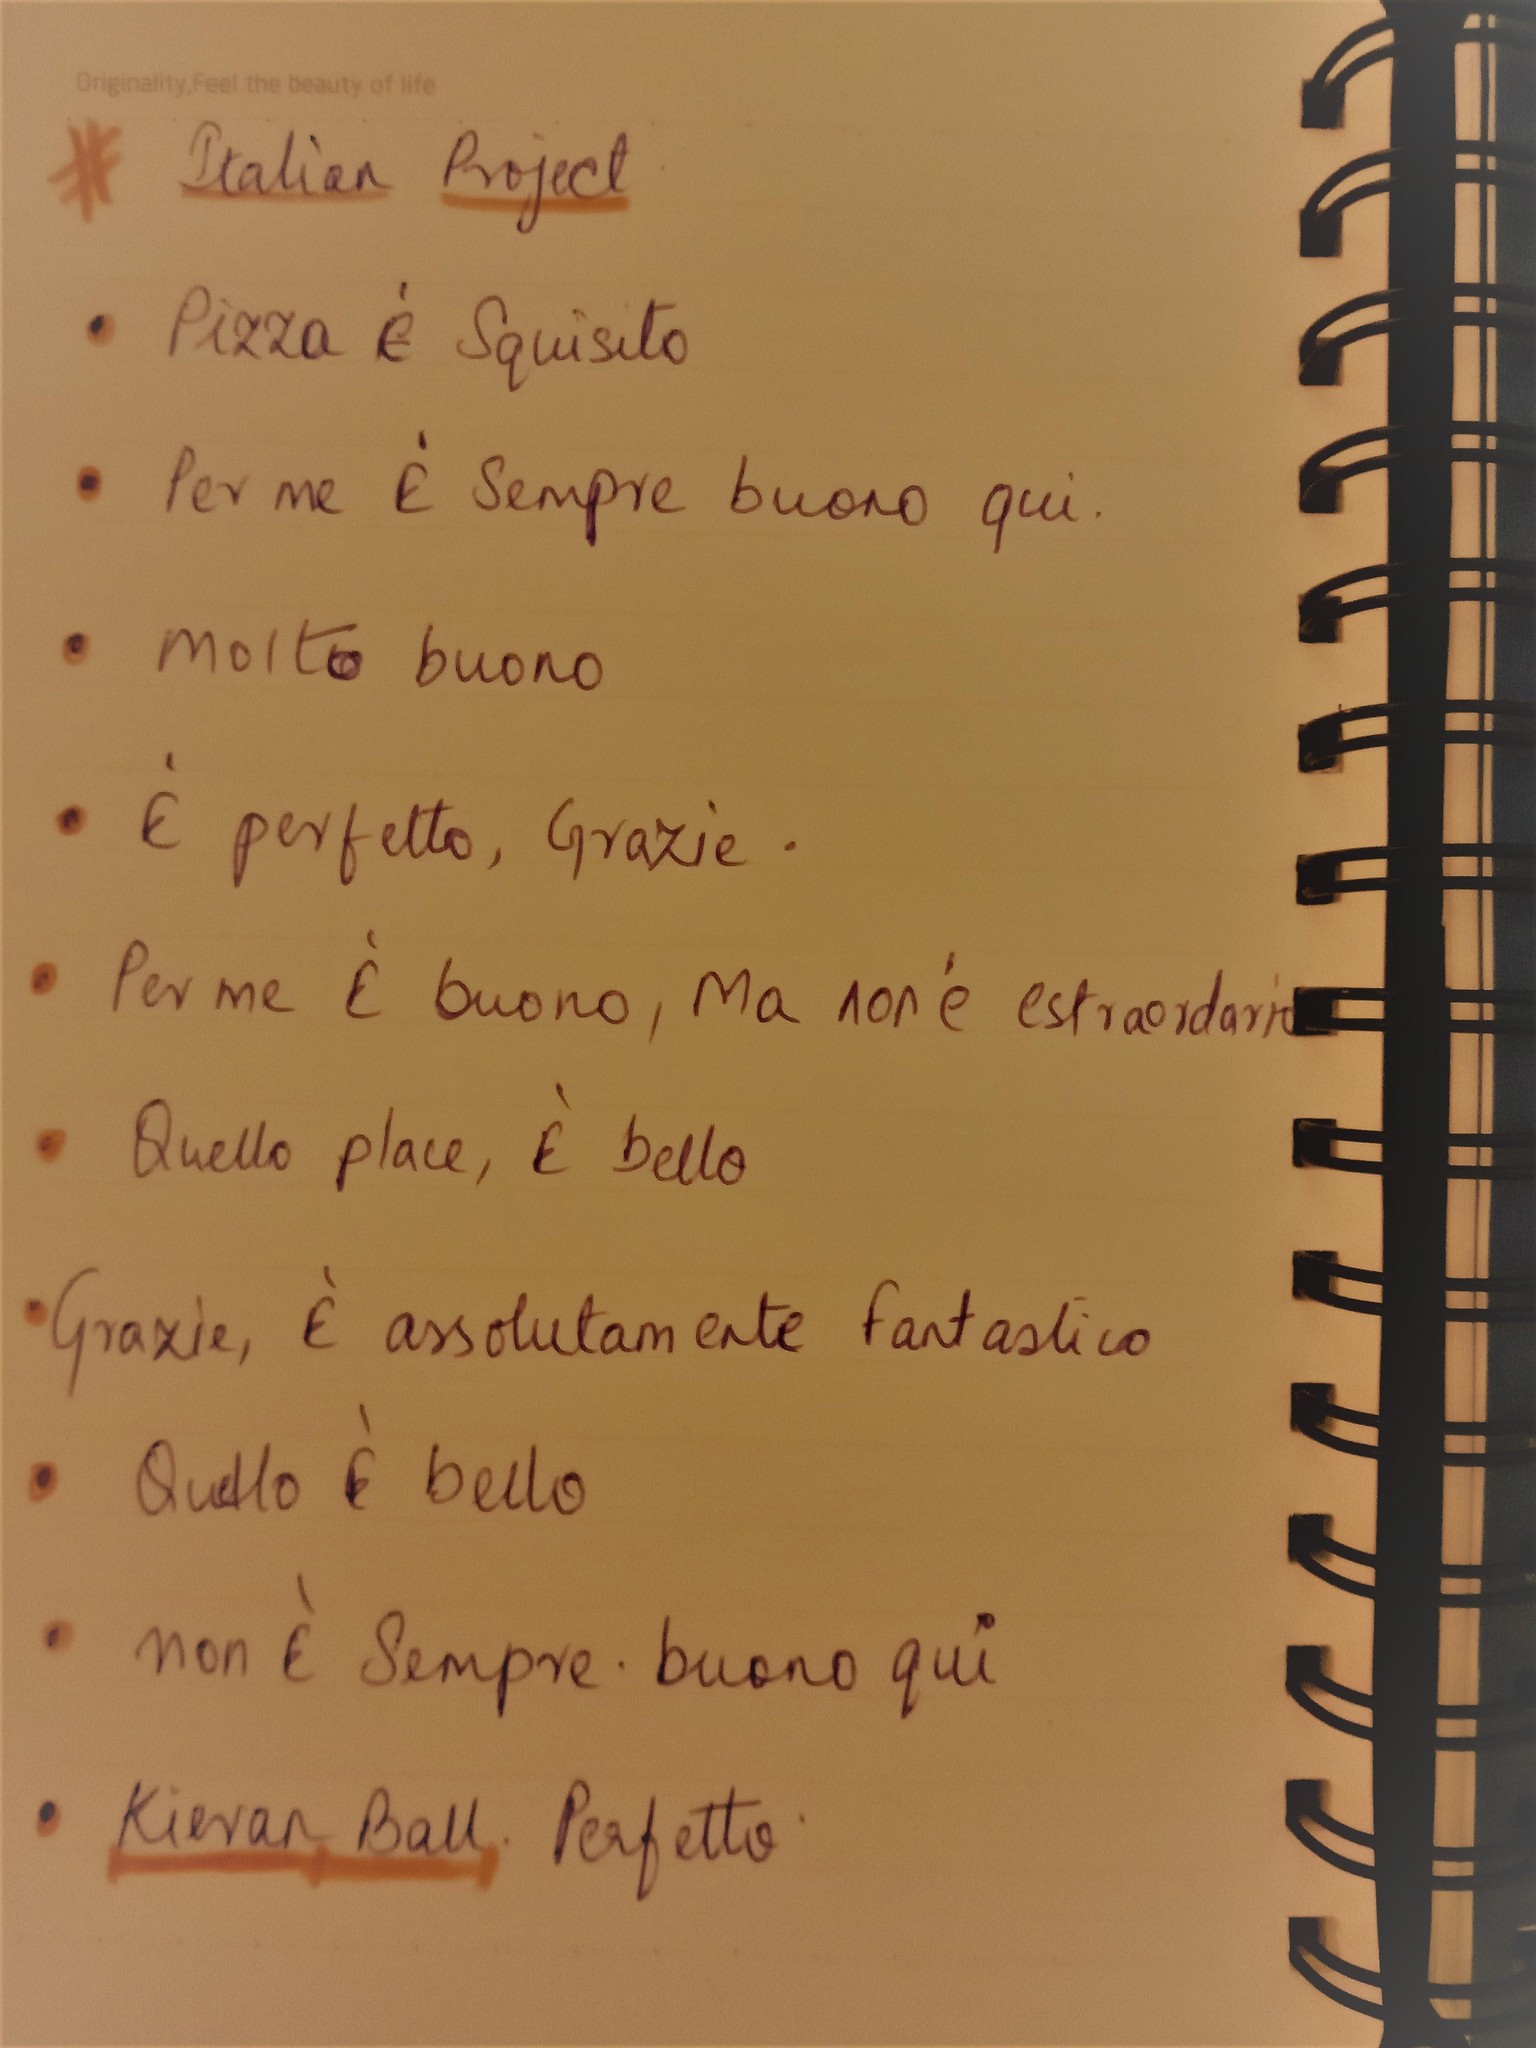 Originality,Feel the beauty of life
Italian Project
Pizza È Squisito
Per me È Sempre buono qui.
Molto buono
È perfetto, Grazie.
Per me È buono, Ma non é estraordario
Quello place, È bello
Grazie, È assolutamente fantastico
Quello È bello
non È Sempre. buono qui
Kieran Ball. Perfetto.